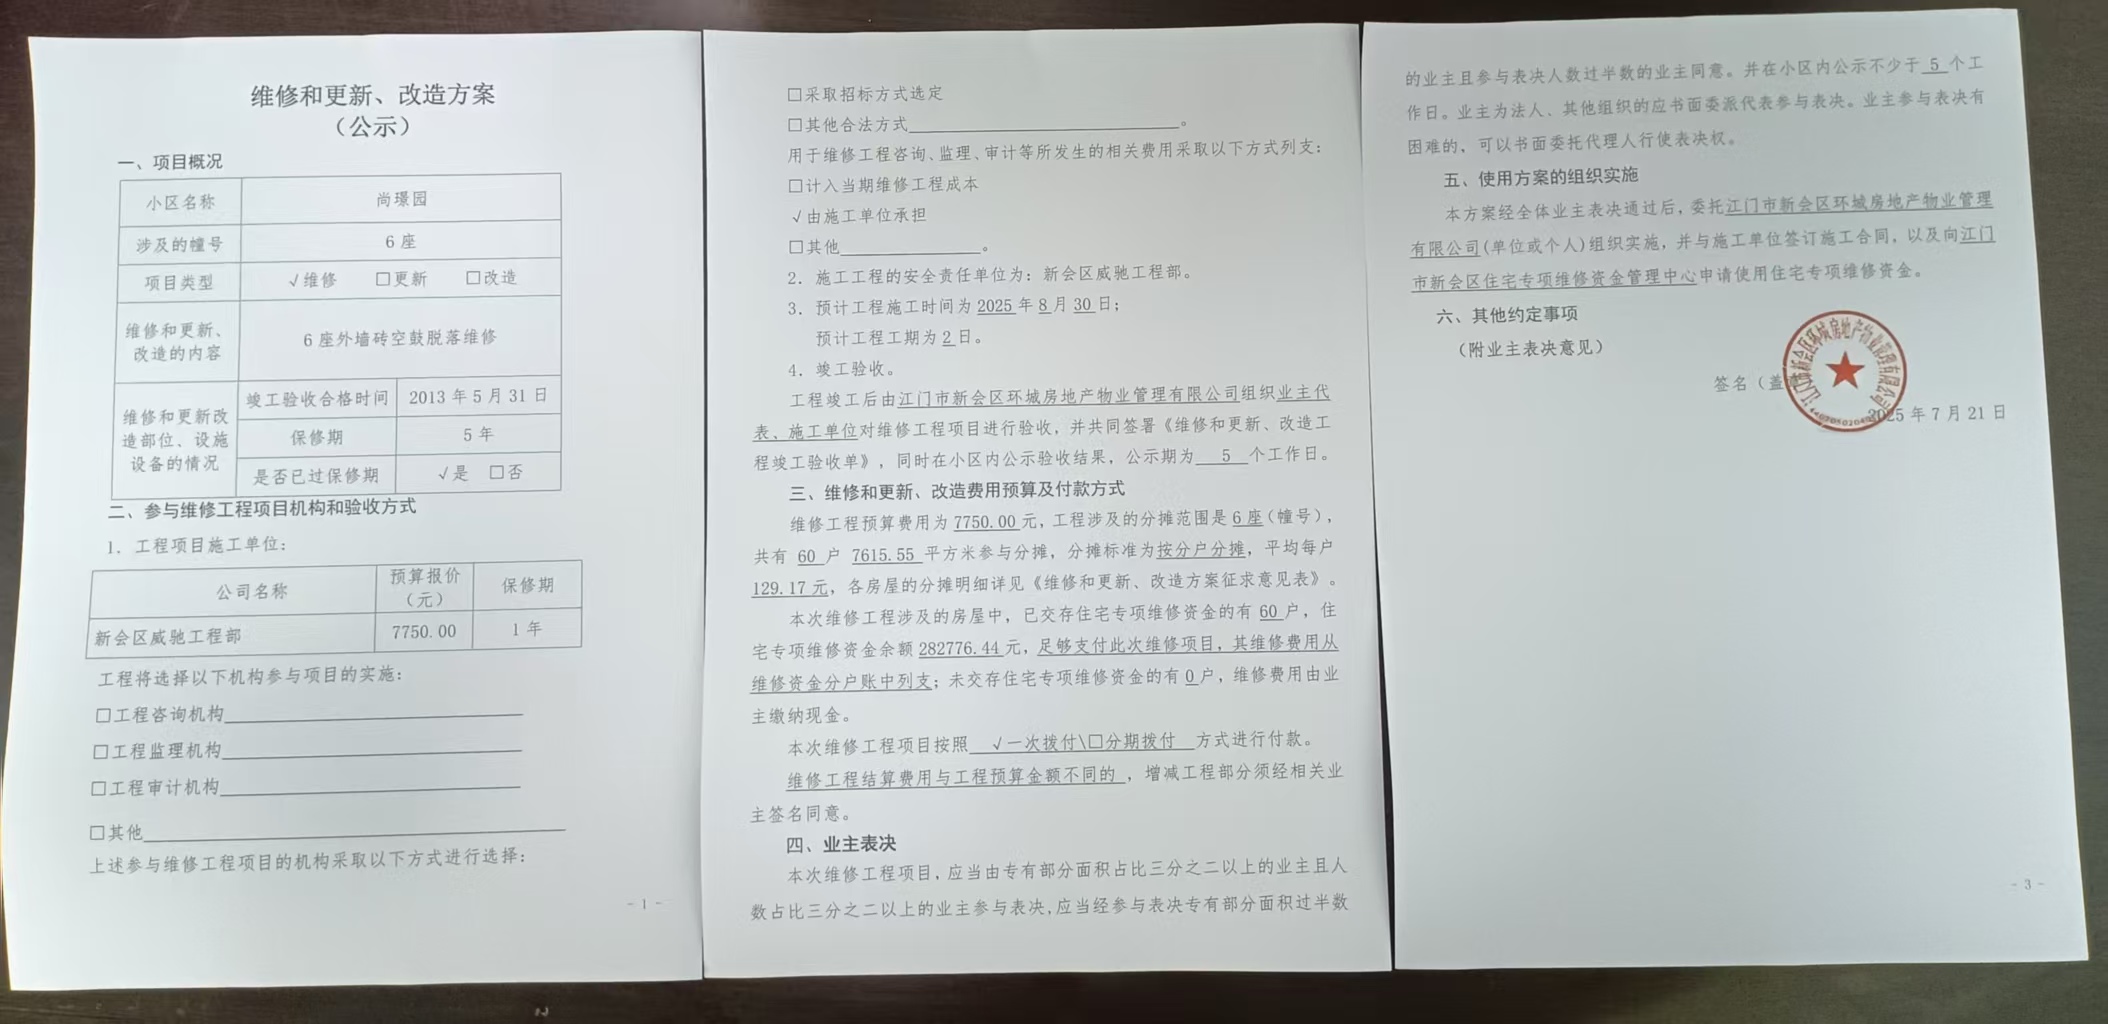 维修和更新、改造方案
（公示）
一、项目概况
小区名称 尚璟园
涉及的幢号 6座
项目类型 √维修 □更新 □改造
维修和更新、
改造的内容
6座外墙砖空鼓脱落维修
维修和更新改
造部位、设施
设备的情况
竣工验收合格时间 2013年5月31日
保修期 5年
是否已过保修期 √是 □否
二、参与维修工程项目机构和验收方式
1. 工程项目施工单位：
公司名称 预算报价（元） 保修期
新会区威驰工程部 7750.00 1年
工程将选择以下机构参与项目的实施：
□工程咨询机构
□工程监理机构
□工程审计机构
□其他
上述参与维修工程项目的机构采取以下方式进行选择：
- 1 -
□采取招标方式选定
□其他合法方式 。
用于维修工程咨询、监理、审计等所发生的相关费用采取以下方式列支：
□计入当期维修工程成本
√由施工单位承担
□其他 。
2. 施工工程的安全责任单位为：新会区威驰工程部。
3. 预计工程施工时间为2025年8月30日；
预计工程工期为2日。
4. 竣工验收。
工程竣工后由江门市新会区环城房地产物业管理有限公司组织业主代
表、施工单位对维修工程项目进行验收，并共同签署《维修和更新、改造工
程竣工验收单》，同时在小区内公示验收结果，公示期为 5 个工作日。
三、维修和更新、改造费用预算及付款方式
维修工程预算费用为7750.00元，工程涉及的分摊范围是6座（幢号），
共有 60 户 7615.55 平方米参与分摊，分摊标准为按分户分摊，平均每户
129.17元，各房屋的分摊明细详见《维修和更新、改造方案征求意见表》。
本次维修工程涉及的房屋中，已交存住宅专项维修资金的有60户，住
宅专项维修资金余额282776.44元，足够支付此次维修项目，其维修费用从
维修资金分户账中列支；未交存住宅专项维修资金的有0户，维修费用由业
主缴纳现金。
本次维修工程项目按照 √一次拨付\□分期拨付 方式进行付款。
维修工程结算费用与工程预算金额不同的 ，增减工程部分须经相关业
主签名同意。
四、业主表决
本次维修工程项目，应当由专有部分面积占比三分之二以上的业主且人
数占比三分之二以上的业主参与表决，应当经参与表决专有部分面积过半数
的业主且参与表决人数过半数的业主同意。并在小区内公示不少于 5 个工
作日。业主为法人、其他组织的应书面委派代表参与表决。业主参与表决有
困难的，可以书面委托代理人行使表决权。
五、使用方案的组织实施
本方案经全体业主表决通过后，委托江门市新会区环城房地产物业管理
有限公司(单位或个人)组织实施，并与施工单位签订施工合同，以及向江门
市新会区住宅专项维修资金管理中心申请使用住宅专项维修资金。
六、其他约定事项
（附业主表决意见）
签名（盖
江门市新会区环城房地产物业管理有限公司
2025年7月21日
- 3 -